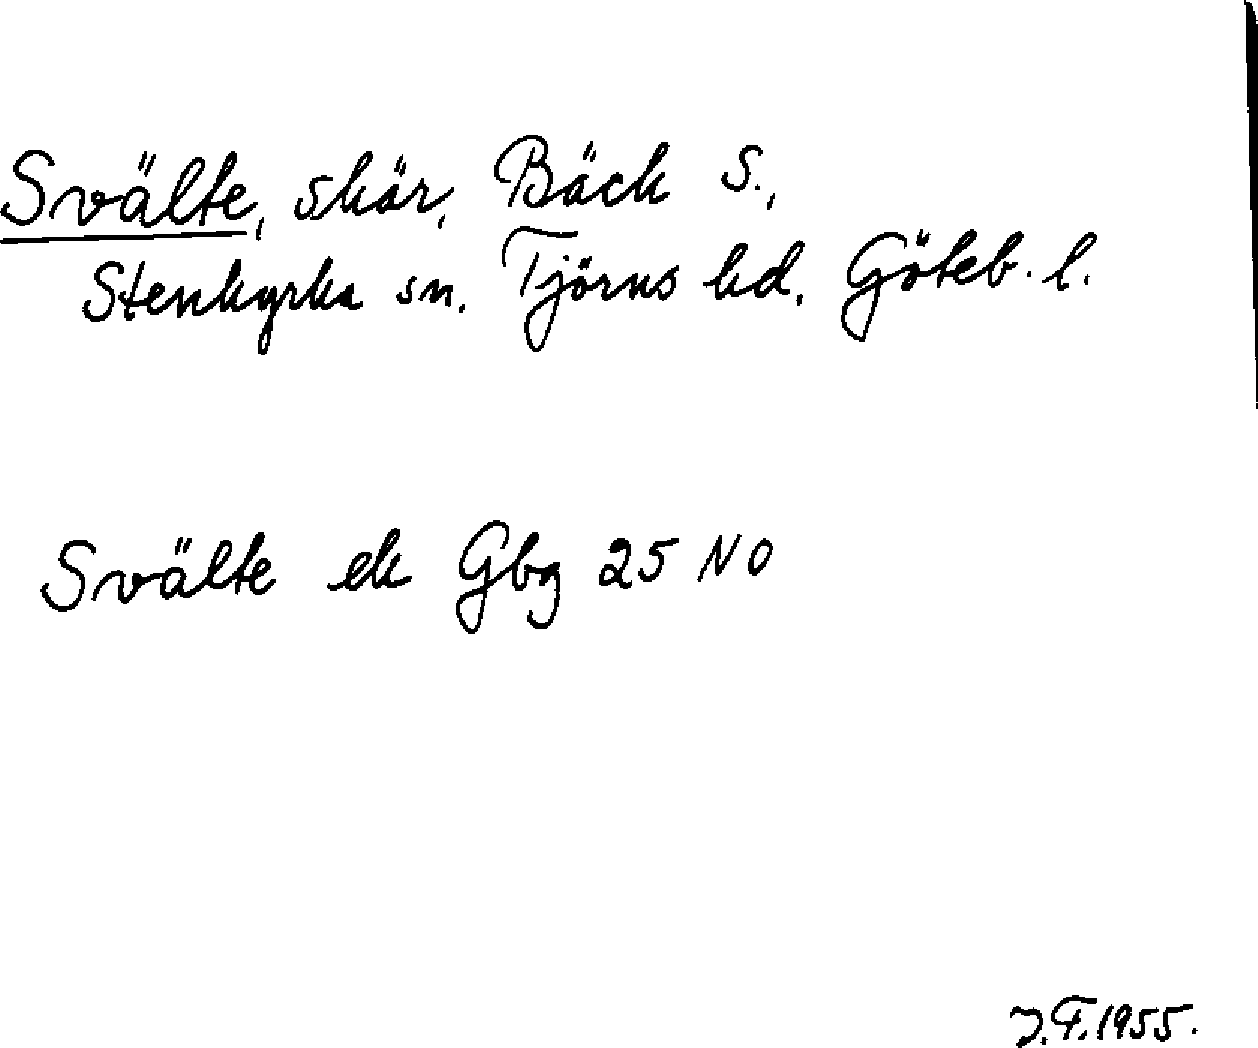 Svälte, skär, Bäck S.,
Stenkyrka sn. Tjörns hd. Göteb. l.
Svälte ek Gbg 25 NO
J.F. 1955.